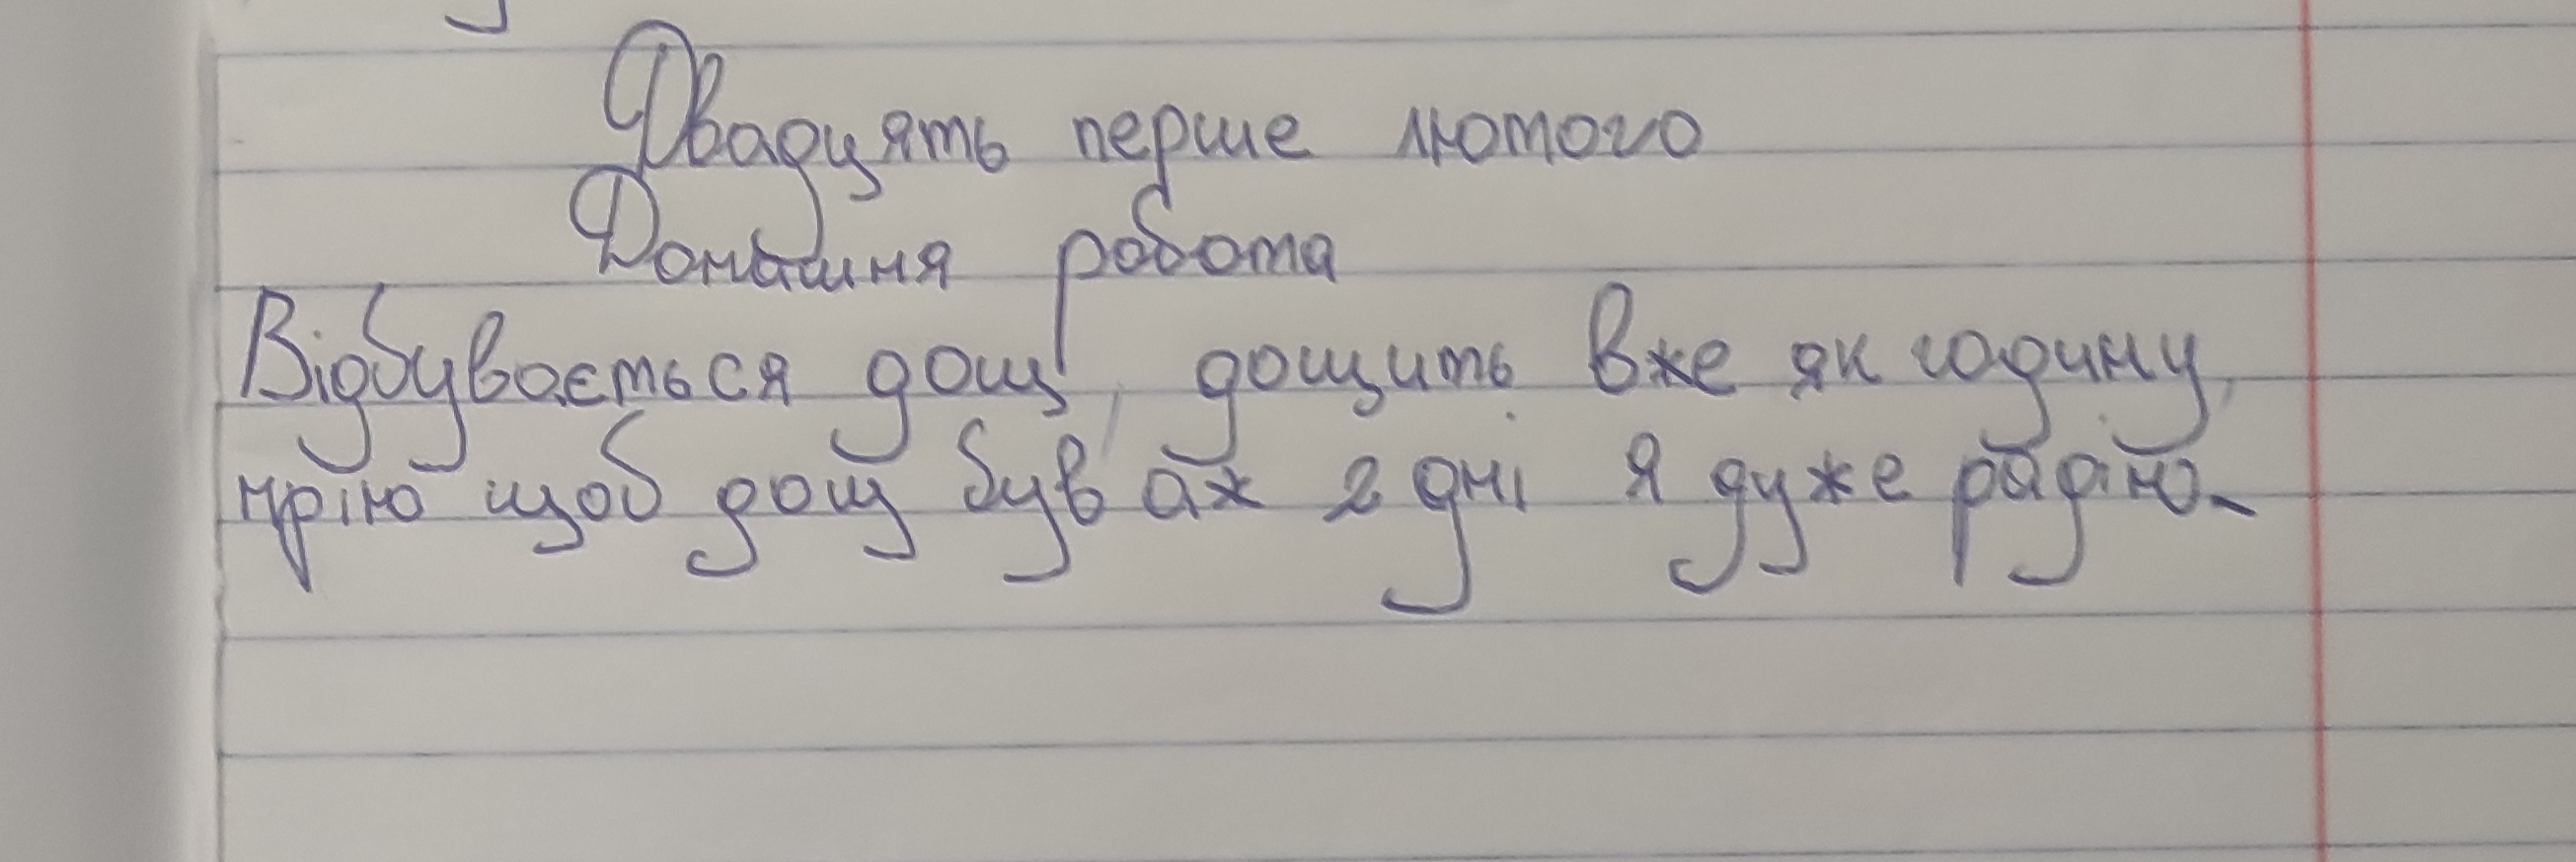 Двадцять перше лютого
Домашня робота
Відбувається дощ, дощить вже як годину,
мрію щоб дощ був аж 2 дні я дуже радію.